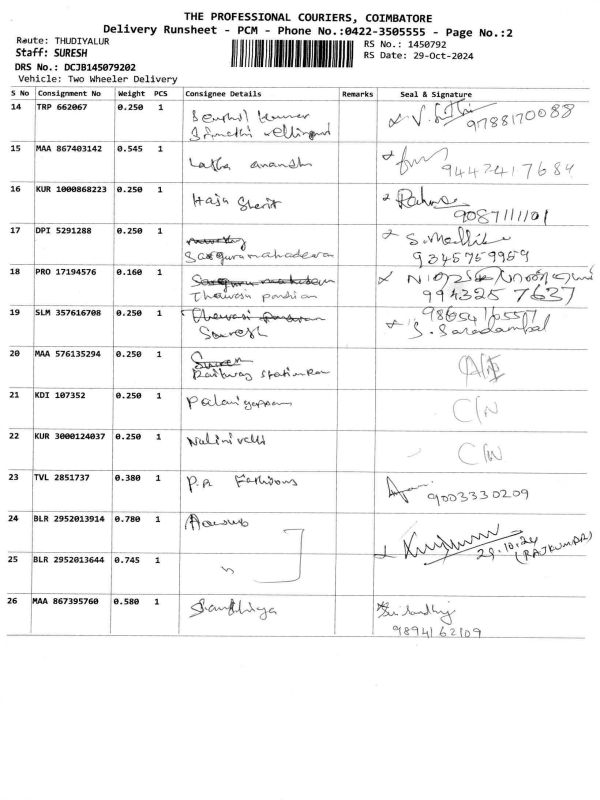 THE PROFESSIONAL COURIERS, COIMBATORE
Delivery Runsheet - PCM - Phone No.:0422-3505555 - Page No.:2
Route: THUDIYALUR
RS No.: 1450792
Staff: SURESH
RS Date: 29-Oct-2024
DRS No.: DCJB145079202
Vehicle: Two Wheeler Delivery
S No Consignment No Weight PCS Consignee Details Remarks Seal & Signature
14 TRP 662067 0.250 1 9788170088
15 MAA 867403142 0.545 1 Latha Anandhi 9442417684
16 KUR 1000868223 0.250 1 Haja Sherit 9087111101
17 DPI 5291288 0.250 1 S. Mallika
Sargurumahadevan 9345759959
18 PRO 17194576 0.160 1
Thawasi pandian 994325 7637
19 SLM 357616708 0.250 1
Suresh S. Saradambal
20 MAA 576135294 0.250 1
Railway Station
21 KDI 107352 0.250 1 Palaniyappan C/N
22 KUR 3000124037 0.250 1 Nalini valli C/N
23 TVL 2851737 0.380 1 P.R Fashions 9003330209
24 BLR 2952013914 0.780 1 29.10.24
(RAJKUMAR)
25 BLR 2952013644 0.745 1 "
26 MAA 867395760 0.580 1
9894162109